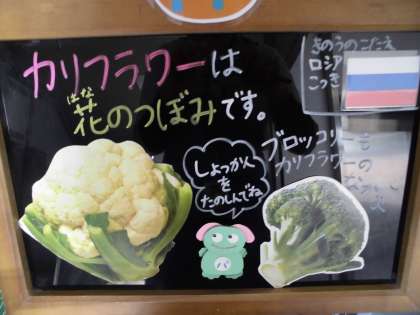 カリフラワーは
花のつぼみです。
はな
しょっかん
を
たのしんでね
きのうのこたえ
ロシア
こっき
ブロッコリー
カリフラワー